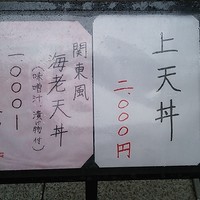 上天丼
二、〇〇〇円
関東風
海老天丼
(味噌汁、漬け物付)
一〇〇〇